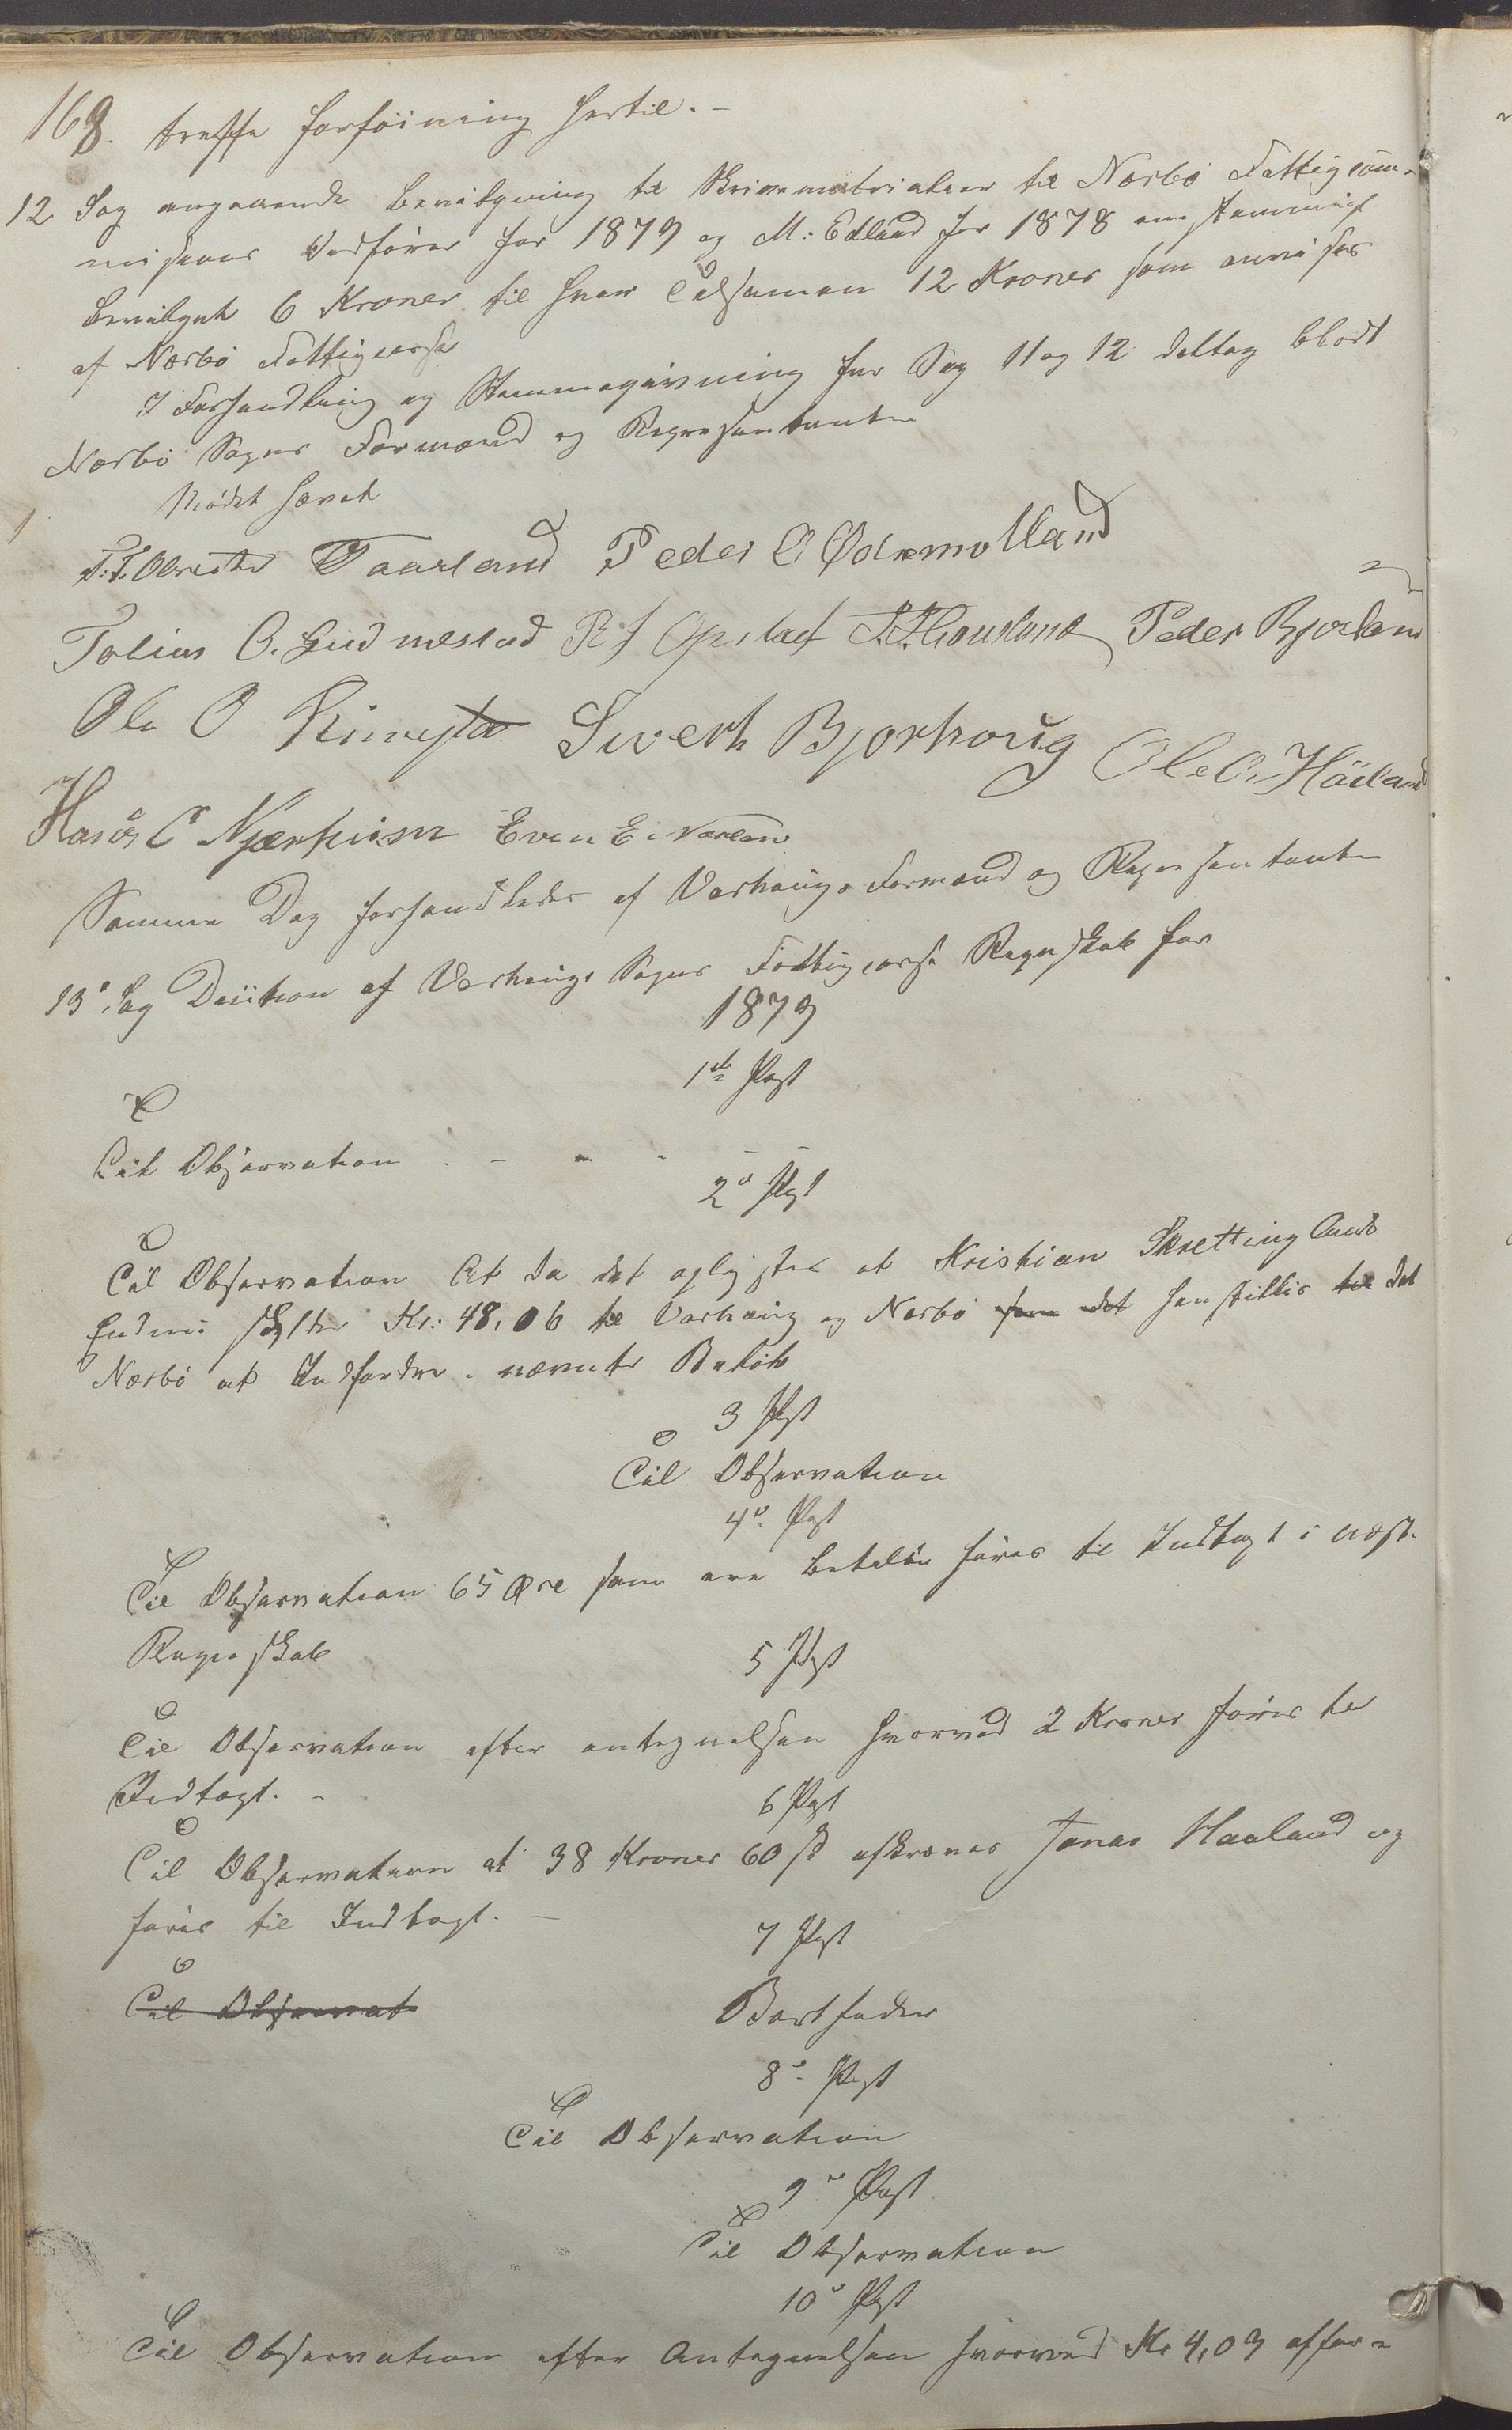 168. træffe Forføining hertil. -
12 Sag angaaende bevilgning til Skrivematrialier til Nærbø Fattigcom-
misions Ordfører for 1879 og M: Edland for 1878 enstemmigt
bevilget 6 Kroner til hver Tilsamen 12 Kroner som anvises
af Nærbø Fattigcasse
I Forhandling og Stemmegivning for Sag 11 og 12 deltog blodt
Nærbø Sogns Formænd og Representanter
Mødet hævet
Taarland Peder O Ødemotland
Tobias O. Gudmestad R J Opstad Peder Bjorland
Ole O Sivert Bjorhoug Ole O. Høiland
Hans C Njærheim Even E
Samme Dag forhandledes af Varhougs Formænd og Representanter
13de Sag Desition af Varhougs Sogns Fattigcasse Regnskab for
1879
1ste Post
Til Observation - - - - -
2den Post
Til Observation At da det oplystes at Kristian Skretting
Endnu skylder Kr: 48,06 til Varhoug og Nærbø som det henstilles til det
Nærbø at Indfordre nævnte Beløb
3 Post
Til Observation
4de Post
Til Observation 65 Øre som ere betalte føres til Indtægt i næste
Regnskab
5 Post
Til Observation efter antegnelsen hvorved 2 Kroner føres til
Indtægt. -
6 Post
Til Observation at 38 Kroner 60 afkræves Jonas Haaland og
føres til Indtægt. -
7 Post
Til Observat
Bortfalder
8de Post
Til Observation
9de Post
Til Observation
10de Post
Til Observation efter Antegnelsen hvorved Kr 4,03 affor-